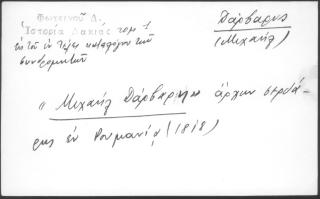 Φωτεινοῦ Δ.
Ἱστορία Δακίας τομ 1
εἰς τὸν ἐν τέλει κατάλογον τῶν
συνδρομητῶν
Δάρβαρις
(Μιχαήλ)
"Μιχαήλ Δάρβαρης ἄρχων σερδά-
ρης ἐν Ρουμανίᾳ (1818)